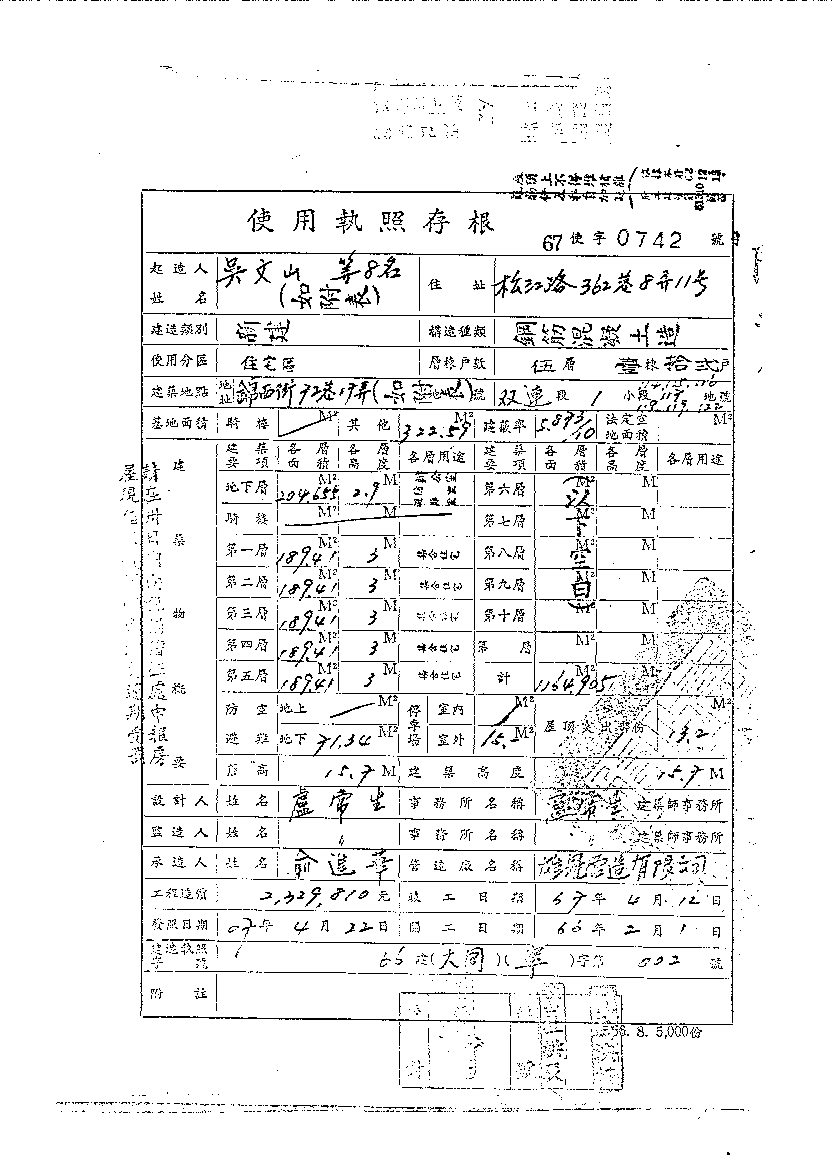 使用執照存根
67 使字 0742 號
起造人姓名 吳文山 等8名(如附表) 住址 松江路362巷8弄11号
建造類別 新建 構造種類 鋼筋混凝土造
使用分區 住宅區 層棟戶數 伍層 壹棟 拾弍戶
建築地點 地址 錦西街72巷17弄(如附表)號 双連段 1 小段 地號
基地面積 騎樓 M² 其他 322.59 M² 建蔽率 5.893/10 法定空地面積 M²
建築物概要
建築要項 各層面積 各層高度 各層用途 建築要項 各層面積 各層高度 各層用途
地下層 204.655 M² 2.9 M 第六層 M² M
騎樓 M² M 第七層 M² M
第一層 189.41 M² 3 M 第八層 M² M
第二層 189.41 M² 3 M 第九層 M² M
第三層 189.41 M² 3 M 第十層 M² M
第四層 189.41 M² 3 M 第 層 M² M
第五層 189.41 M² 3 M 計 1164.905 M² M
(以下空白)
防空避難 地上 M² 停車場 室內 M² 屋頂突出部份 13.2 M²
地下 71.34 M² 室外 15.- M²
簷高 15.7 M 建築高度 15.7 M
設計人 姓名 盧常生 事務所名稱 盧常生 建築師事務所
監造人 姓名 〃 事務所名稱 建築師事務所
承造人 姓名 俞進華 營造廠名稱 營造有限公司
工程造價 2,329,810 元 竣工日期 67年4月12日
發照日期 67年4月22日 開工日期 66年2月1日
建造執照字號 66 建(大同)(單)字第 002 號
附註
56. 8. 5,000份